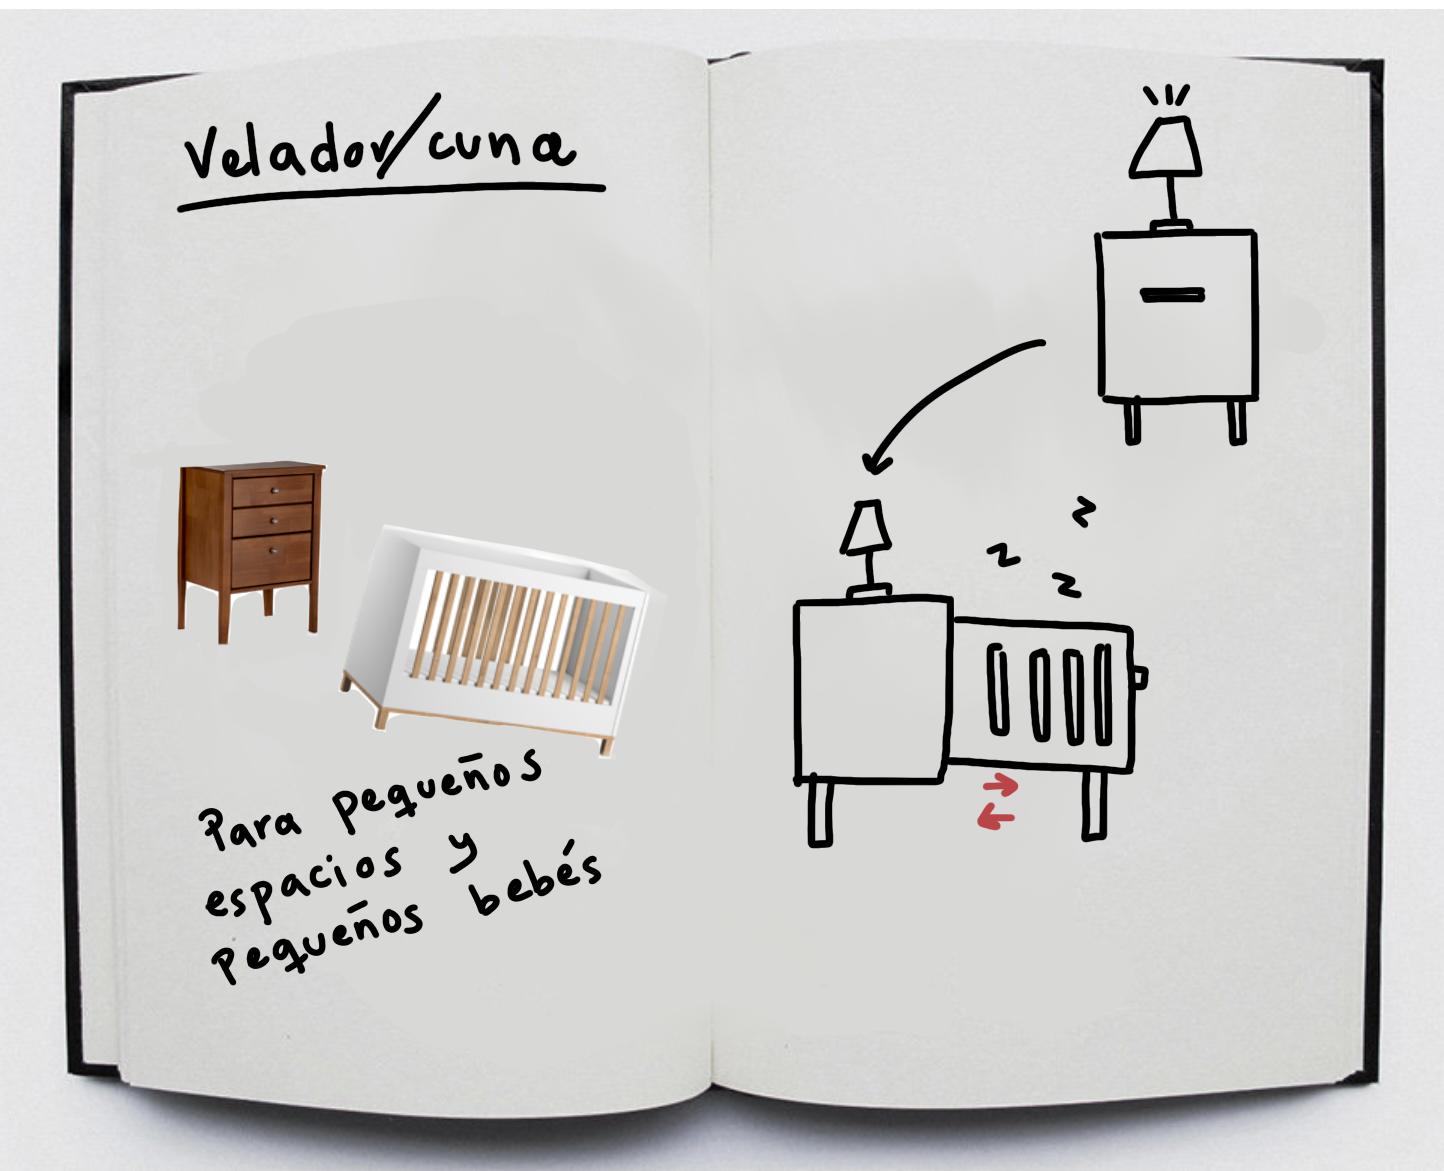 Velador/cuna
Para pequeños
espacios y
pequeños bebés
z
z
z